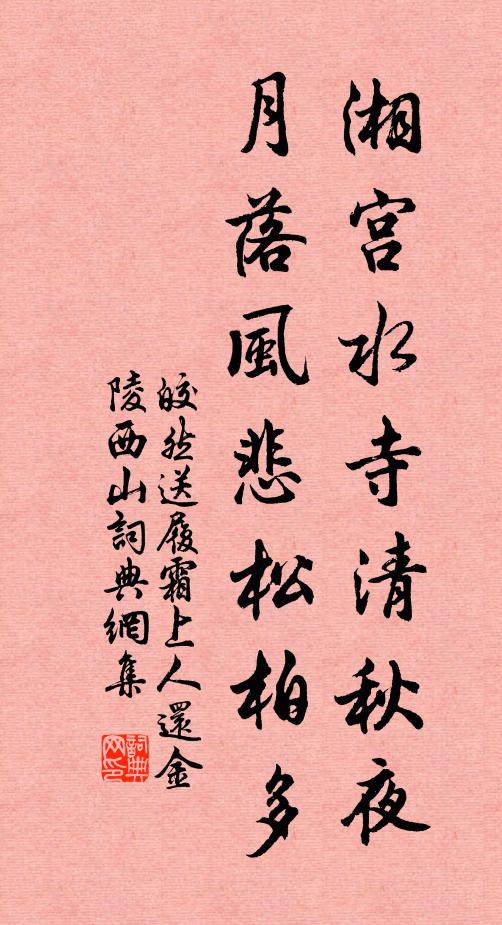 湘宫水寺清秋夜
月落風悲松柏多
皎然送履霜上人還金
陵西山詞典網集
詞典网印